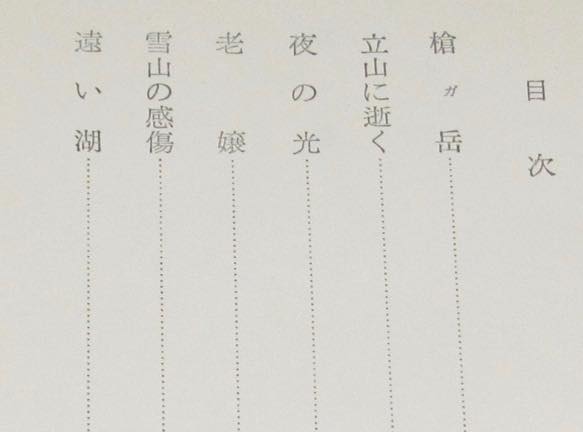 目次
槍ガ岳
立山に逝く
夜の光
老嬢
雪山の感傷
遠い湖